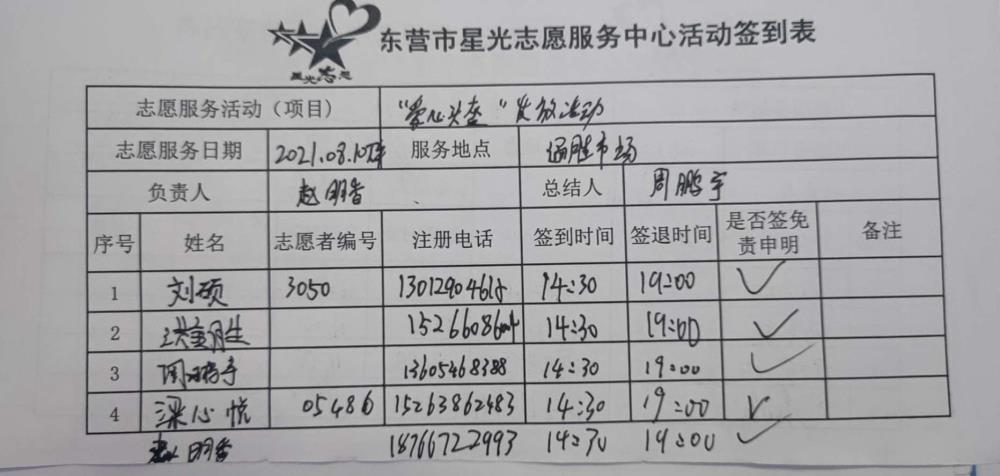 东营市星光志愿服务中心活动签到表
星光志愿
志愿服务活动（项目） “爱心头盔”发放活动
志愿服务日期 2021.08.10 服务地点 市场
负责人 赵明香 总结人 周鹏宇
序号 姓名 志愿者编号 注册电话 签到时间 签退时间 是否签免责申明 备注
1 刘硕 3050 14:30 19:00 ✓
2 14:30 19:00 ✓
3 周鹏宇 13605468388 14:30 19:00 ✓
4 梁心悦 05486 15263862483 14:30 19:00 ✓
赵明香 18766722993 14:30 19:00 ✓